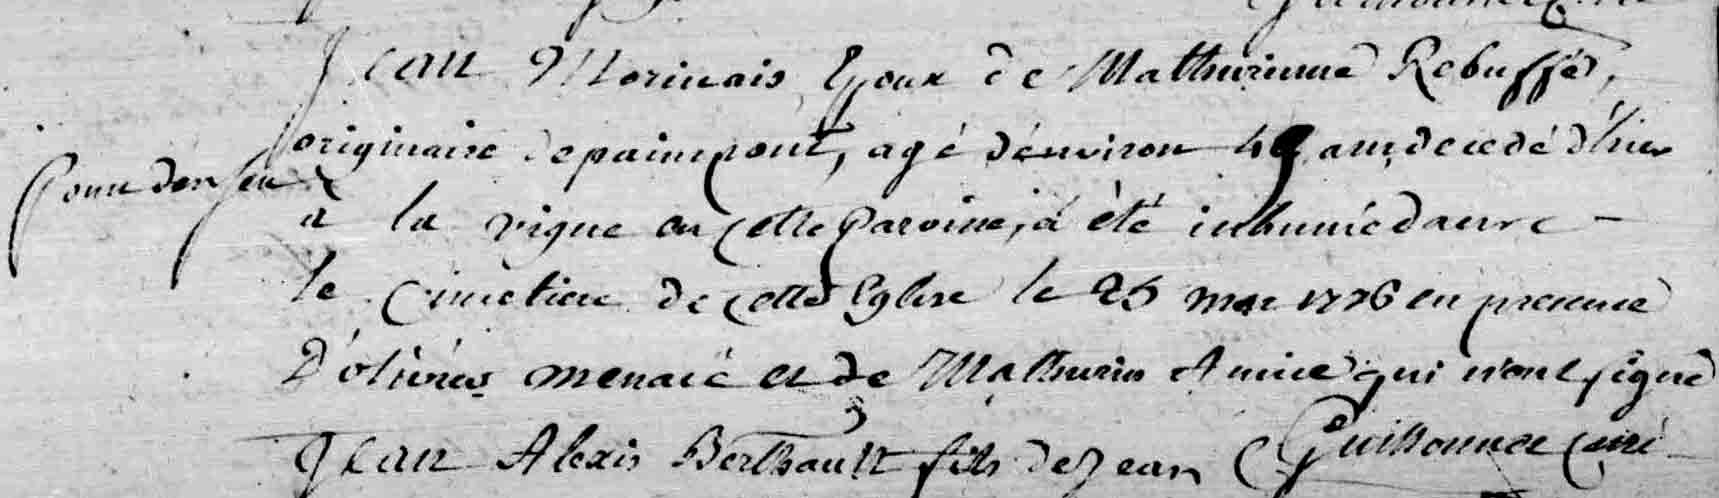 Jean Morinais Epoux de Mathurinne Rebuffé,
originaire de painpont, agé d'environ 49 ans, decedé d'hier
à la vigne en cette Paroisse, a été inhumé dans
le cimetiere de cette Eglise le 25 mai 1776 en presence
D'olivier menaić et de Mathurin Amice qui n'ont signé
Guillonnee curé
Jean Alexis Berthault fils de Jean